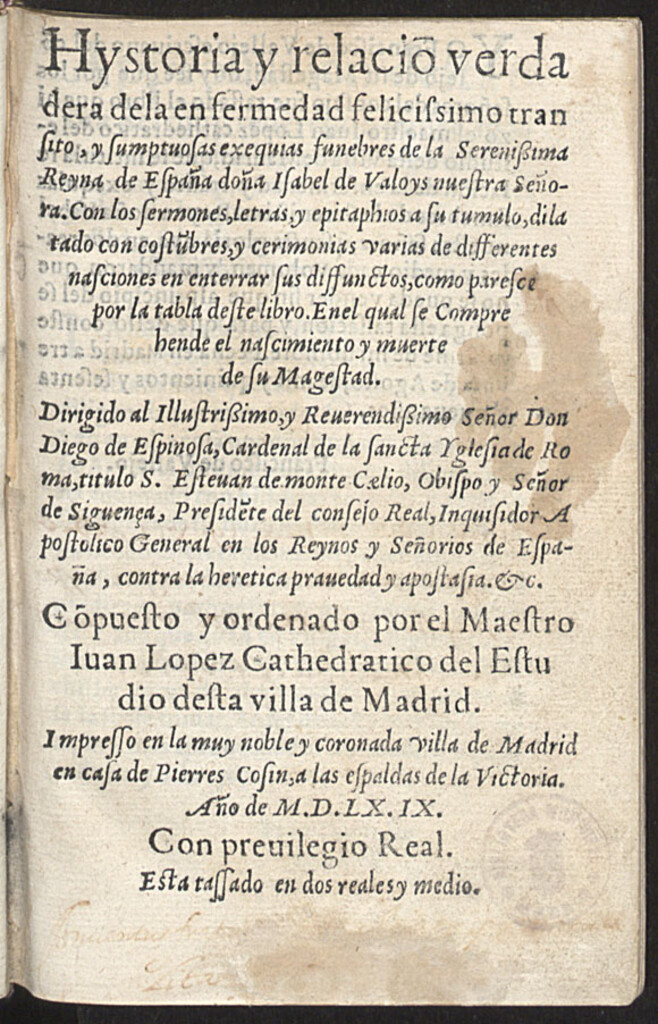 Hystoria y relaciō verda
dera dela enfermedad felicissimo tran
sito, y sumptuosas exequias funebres de la Sereniſsima
Reyna de Eſpaña doña Iſabel de Valoys nuestra Seño-
ra. Con los ſermones, letras, y epitaphios a ſu tumulo, dila
tado con coſtũbres, y cerimonias varias de differentes
naſciones en enterrar ſus diffunctos, como pareſce
por la tabla deſte libro. Enel qual ſe Compre
hende el naſcimiento y muerte
de ſu Mageſtad.
Dirigido al Illuſtriſsimo, y Reuerendiſsimo Señor Don
Diego de Eſpinoſa, Cardenal de la ſancta Ygleſia de Ro
ma, titulo S. Eſteuan de monte Cælio, Obiſpo y Señor
de Siguença, Preſidēte del conſejo Real, Inquiſidor A
poſtolico General en los Reynos y Señorios de Eſpa-
ña, contra la heretica prauedad y apoſtaſia. &c.
Cōpueſto y ordenado por el Maeſtro
Iuan Lopez Cathedratico del Eſtu
dio deſta villa de Madrid.
Impreſſo en la muy noble y coronada villa de Madrid
en caſa de Pierres Coſin, a las eſpaldas de la Victoria.
Año de M.D.LX.IX.
Con preuilegio Real.
Eſta taſſado en dos reales y medio.